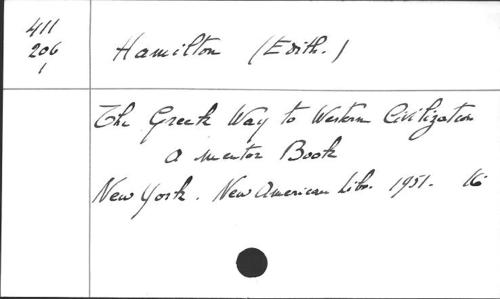 411
206
1
Hamilton (Edith.)
The Greek Way to Western Civilization
a mentor Book
New York. New American Libr. 1951. 16°